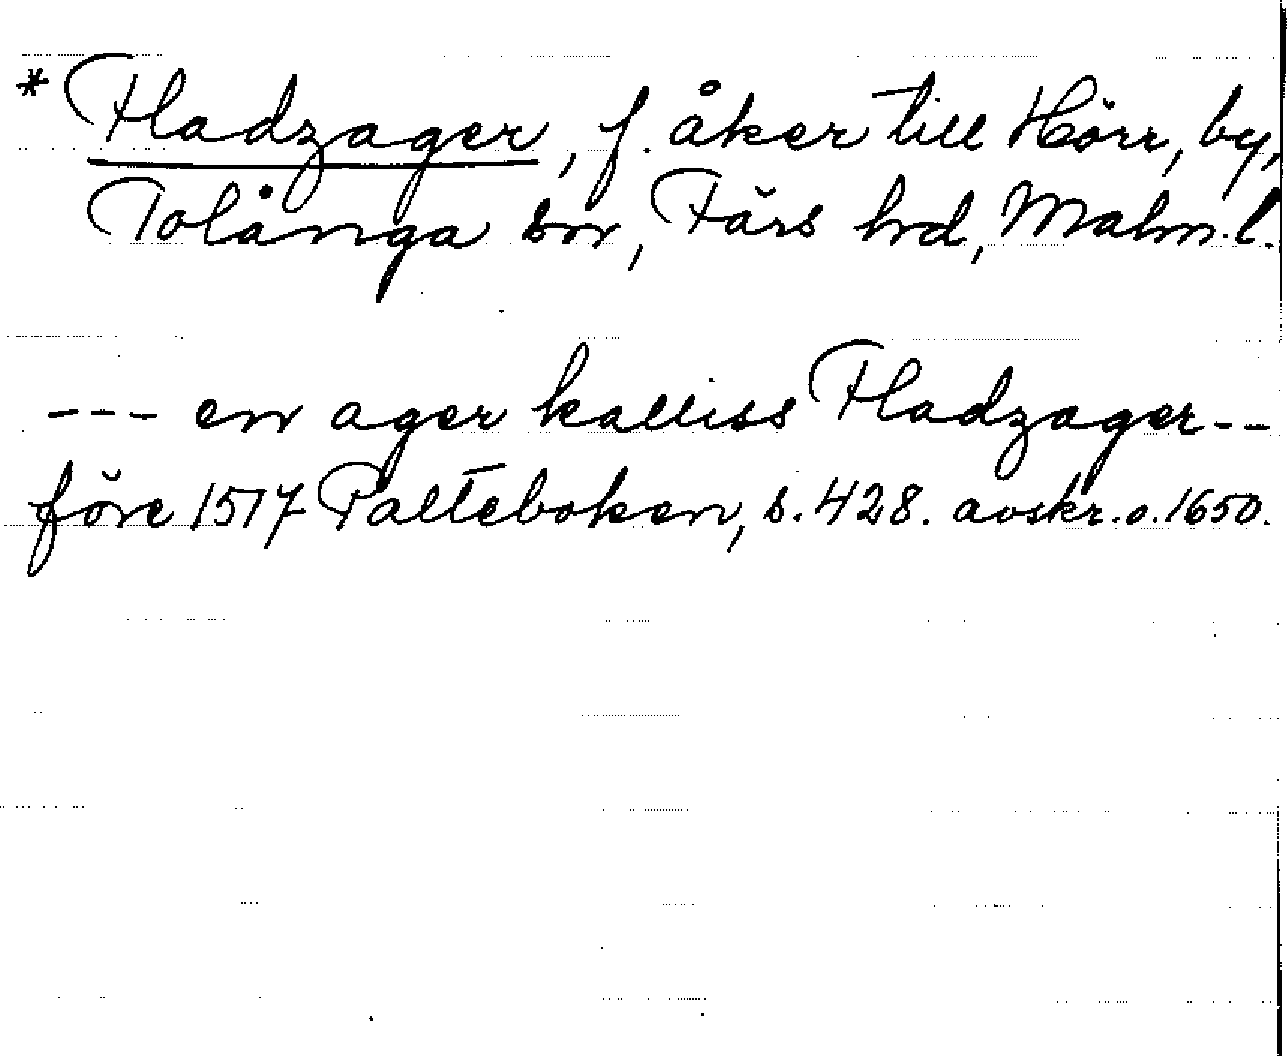 * Fladzager, f. åker till Hörr, by,
Tolånga sn, Färs hd, Malm. l.
--- en ager kalliss Fladzager--
före 1517 Palteboken, s. 428. avskr. o. 1650.